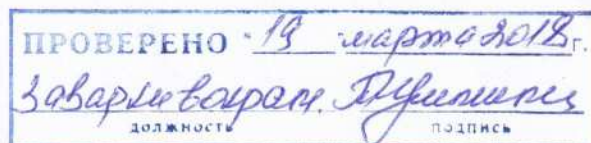 ПРОВЕРЕНО "19" марта 2018 г.
Завархивохран.
должность подпись